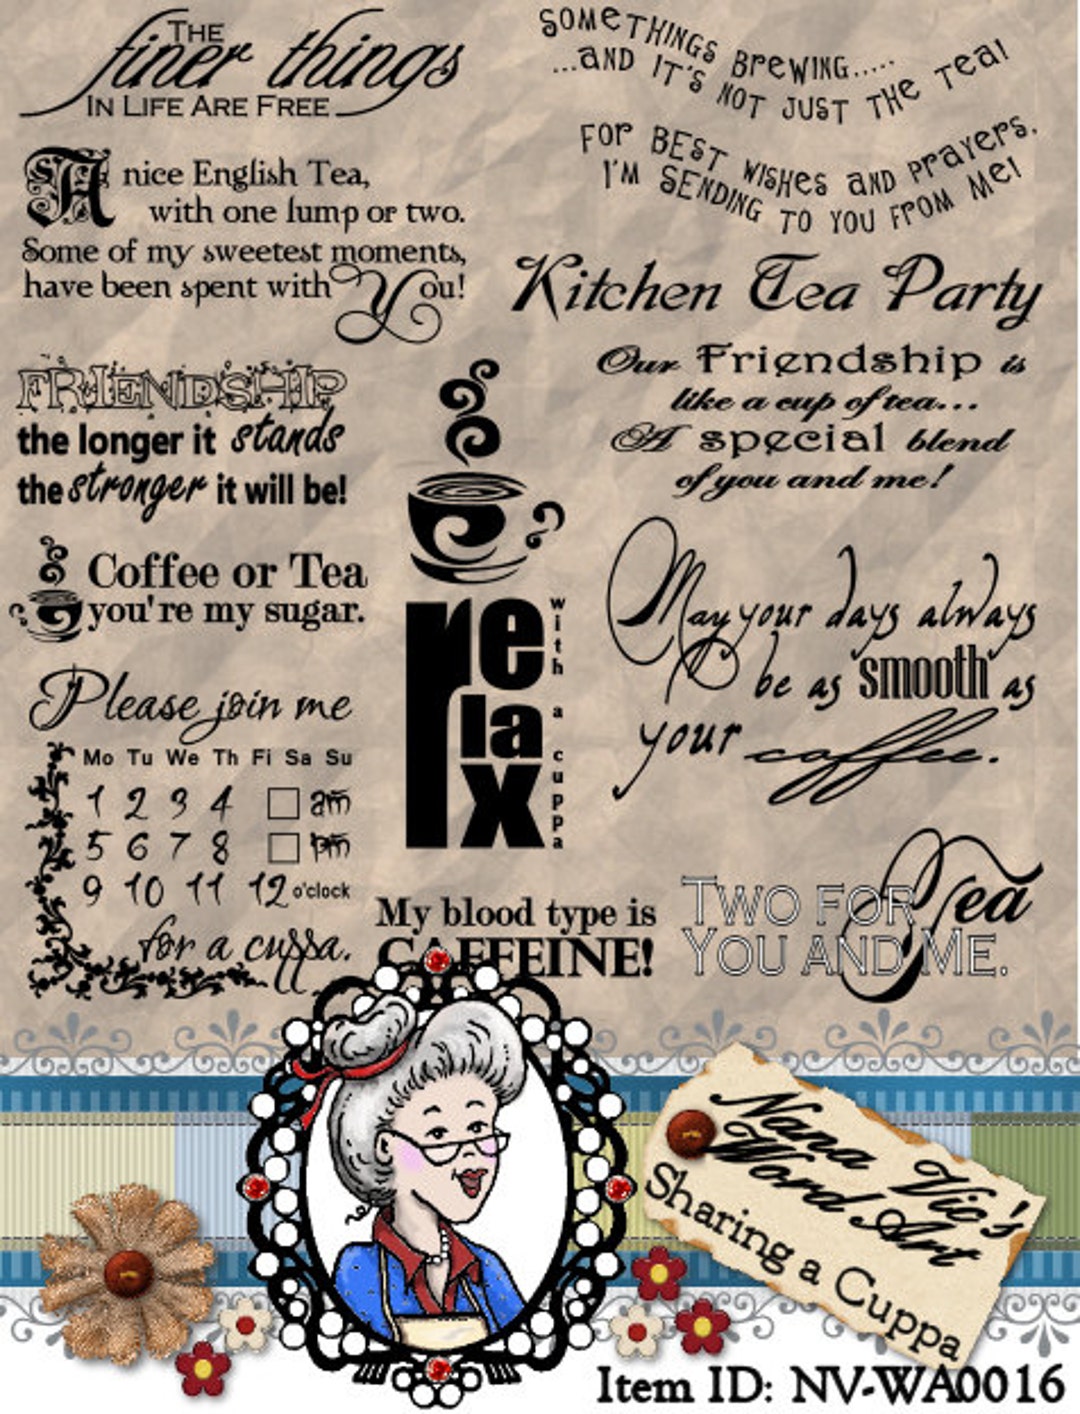 THE
finer things
IN LIFE ARE FREE
SOMETHINGS BREWING.....
...AND IT'S NOT JUST THE TEA!
FOR BEST WISHES AND PRAYERS,
I'M SENDING TO YOU FROM ME!
A nice English Tea,
with one lump or two.
Some of my sweetest moments,
have been spent with You!
Kitchen Tea Party
FRIENDSHIP
the longer it stands
the stronger it will be!
Our Friendship is
like a cup of tea...
A special blend
of you and me!
Coffee or Tea
you're my sugar.
relax
with a cuppa
May your days always
be as smooth as
your coffee.
Please join me
Mo Tu We Th Fi Sa Su
1 2 3 4 am
5 6 7 8 pm
9 10 11 12 o'clock
for a cuppa.
My blood type is
CAFFEINE!
TWO FOR Tea
YOU AND ME.
Nana Vic's
Word Art
Sharing a Cuppa
Item ID: NV-WA0016